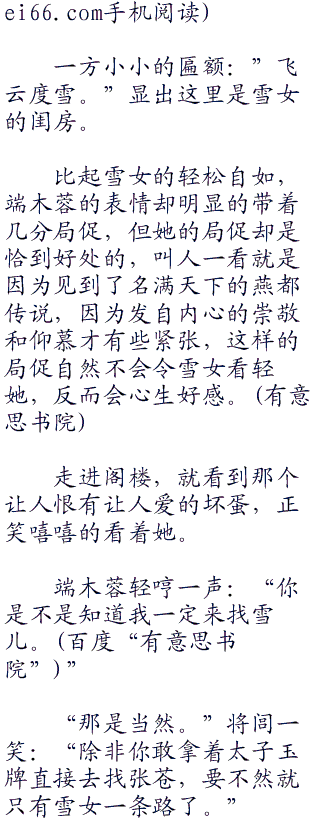 ei66.com手机阅读)
一方小小的匾额：”飞
云度雪。”显出这里是雪女
的闺房。
比起雪女的轻松自如，
端木蓉的表情却明显的带着
几分局促，但她的局促却是
恰到好处的，叫人一看就是
因为见到了名满天下的燕都
传说，因为发自内心的崇敬
和仰慕才有些紧张，这样的
局促自然不会令雪女看轻
她，反而会心生好感。(有意
思书院)
走进阁楼，就看到那个
让人恨有让人爱的坏蛋，正
笑嘻嘻的看着她。
端木蓉轻哼一声：“你
是不是知道我一定来找雪
儿。(百度“有意思书
院”)”
“那是当然。”将闾一
笑：“除非你敢拿着太子玉
牌直接去找张苍，要不然就
只有雪女一条路了。”